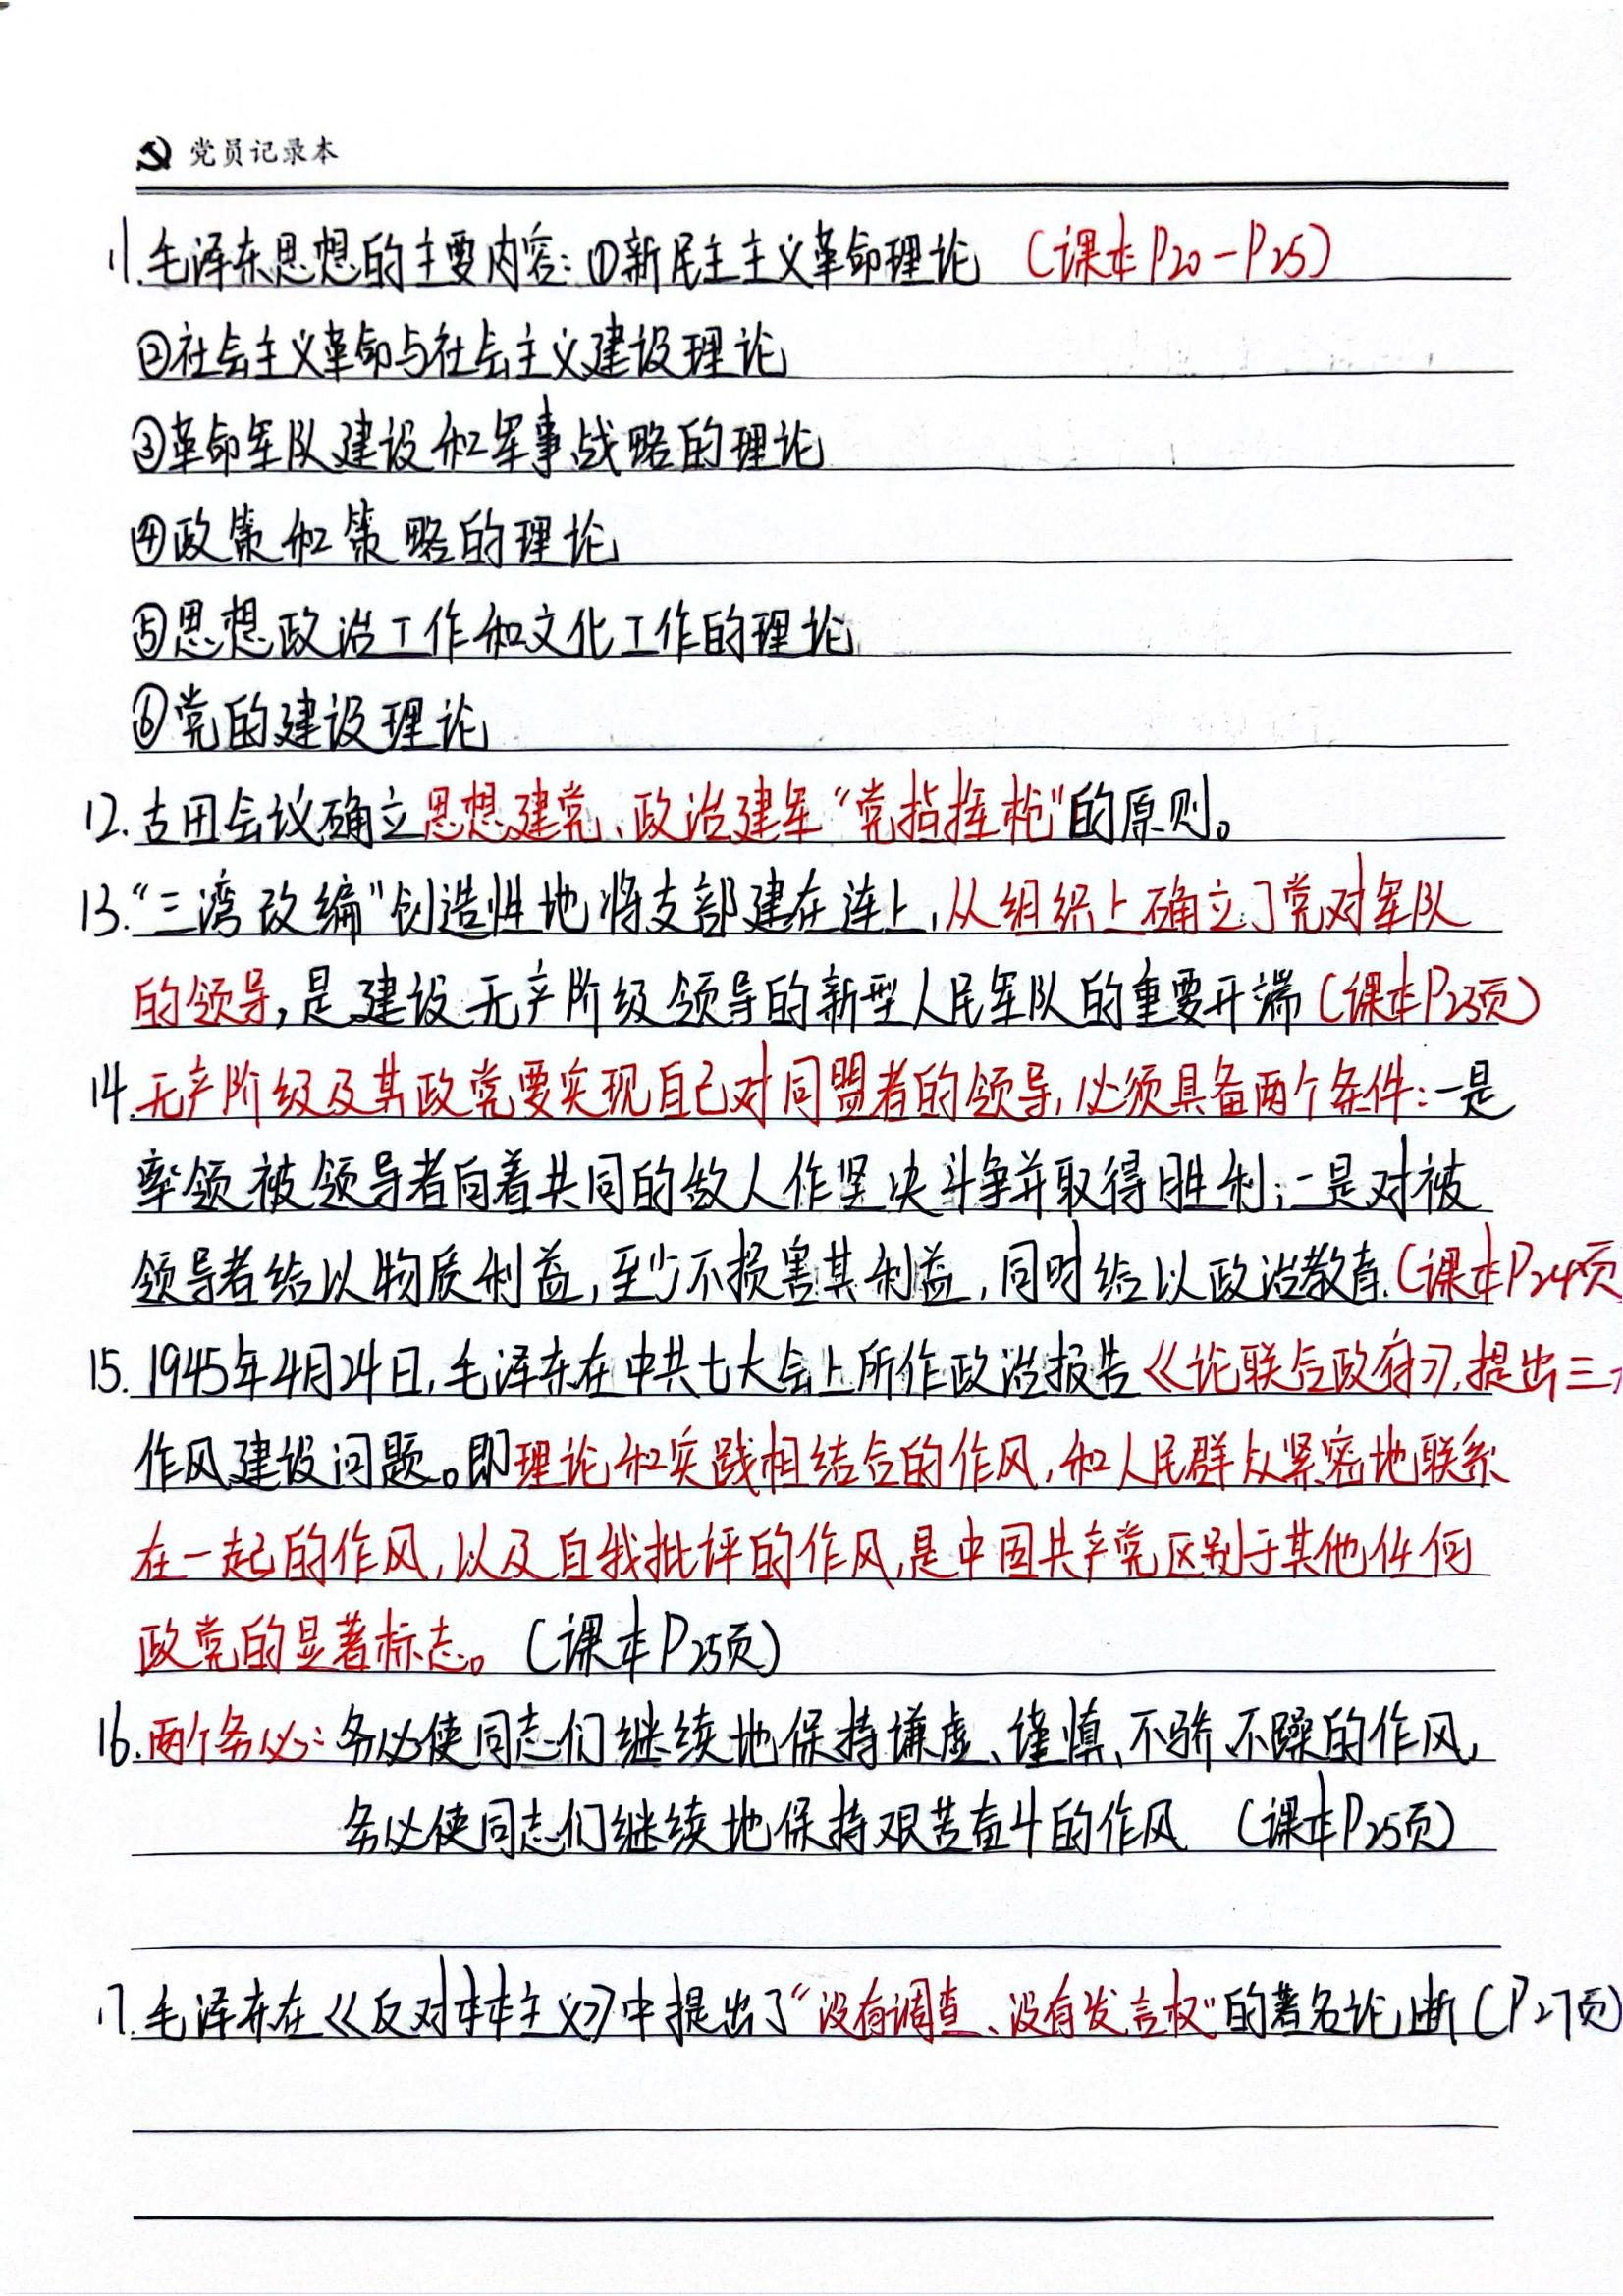 党员记录本
11.毛泽东思想的主要内容:①新民主主义革命理论 (课本P20-P25)
②社会主义革命与社会主义建设理论
③革命军队建设和军事战略的理论
④政策和策略的理论
⑤思想政治工作和文化工作的理论
⑥党的建设理论
12.古田会议确立思想建党、政治建军“党指挥枪”的原则。
13.“三湾改编”创造性地将支部建在连上,从组织上确立了党对军队
的领导,是建设无产阶级领导的新型人民军队的重要开端(课本P23页)
14.无产阶级及其政党要实现自己对同盟者的领导,必须具备两个条件:一是
率领被领导者向着共同的敌人作坚决斗争并取得胜利;二是对被
领导者给以物质利益,至少不损害其利益,同时给以政治教育.(课本P24页
15.1945年4月24日,毛泽东在中共七大会上所作政治报告《论联合政府》,提出三
作风建设问题。即理论和实践相结合的作风,和人民群众紧密地联系
在一起的作风,以及自我批评的作风,是中国共产党区别于其他任何
政党的显著标志。(课本P25页)
16.两个务必:务必使同志们继续地保持谦虚、谨慎、不骄、不躁的作风,
务必使同志们继续地保持艰苦奋斗的作风 (课本P25页)
17.毛泽东在《反对本本主义》中提出了“没有调查、没有发言权”的著名论断(P27页)